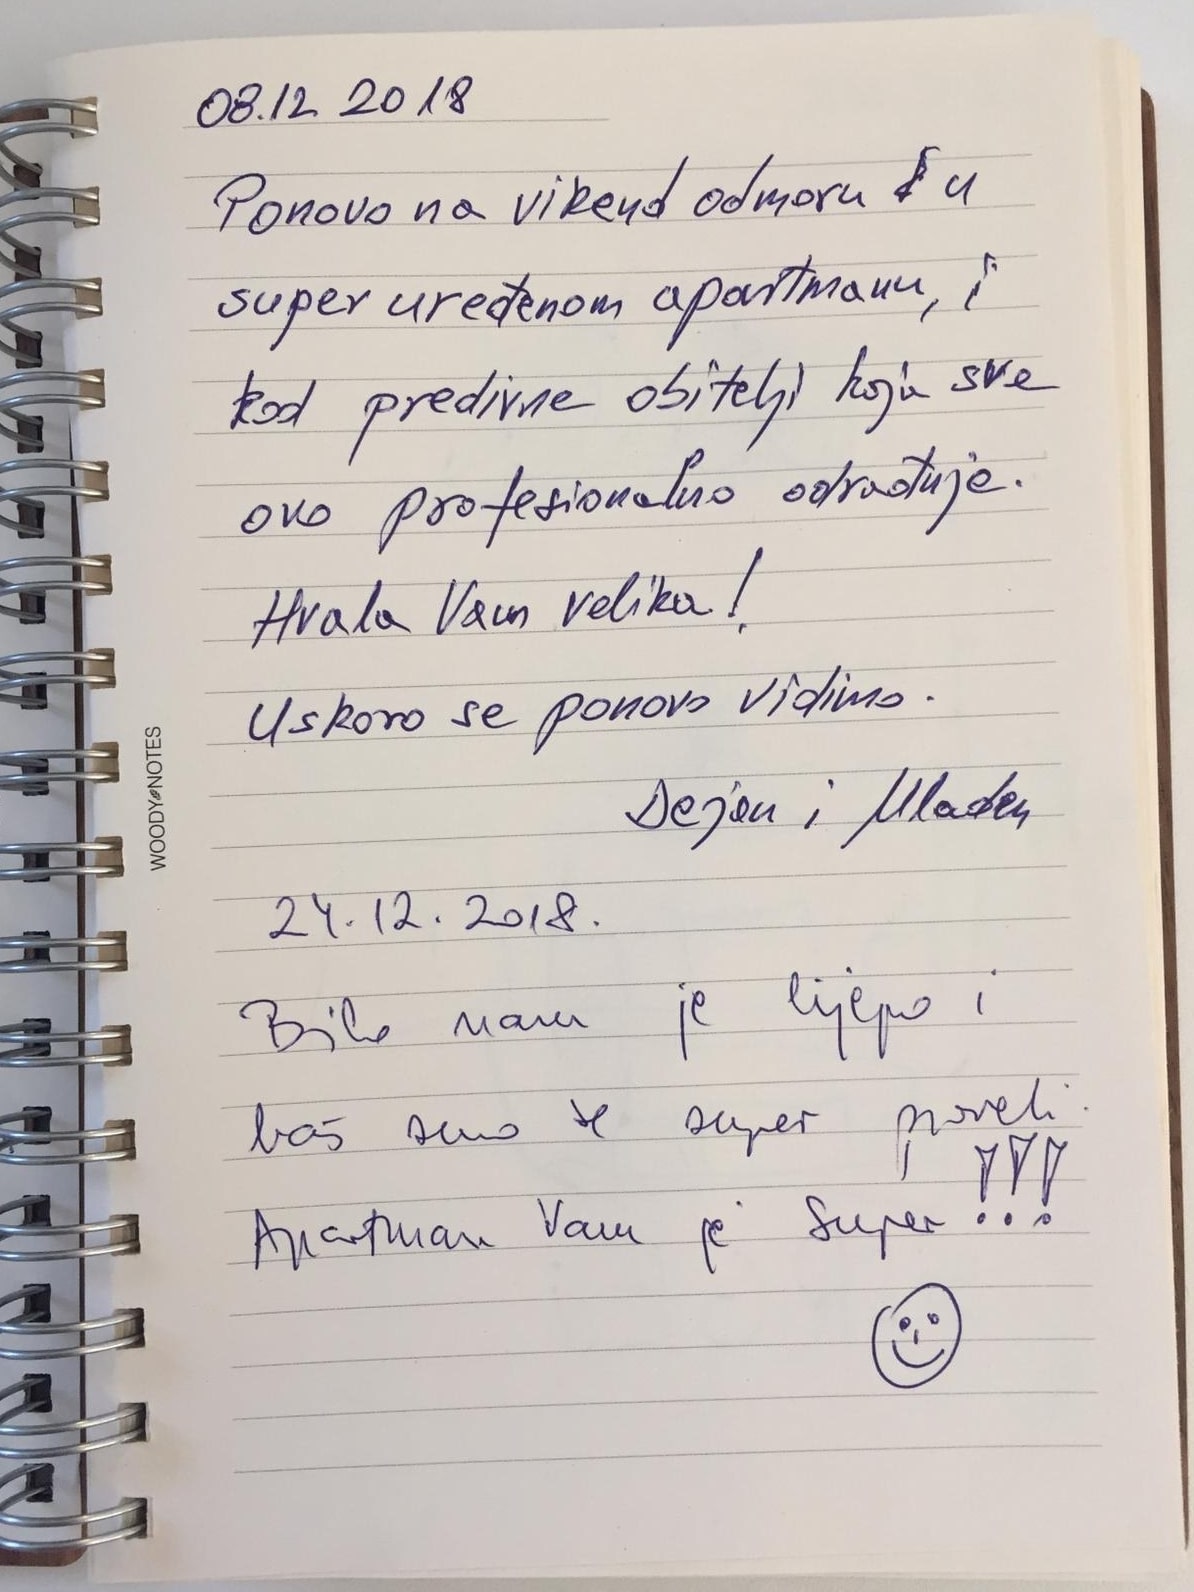 08.12 2018
Ponovo na vikend odmoru u
super uređenom apartmanu, i
kod predivne obitelji koja sve
ovo profesionalno odrađuje.
Hvala Vam velika!
Uskoro se ponovo vidimo.
Dejan i Mladen
24.12.2018.
Bilo nam je lijepo i
baš smo se super proveli.
Apartman Vam je super!!!
WOODY NOTES